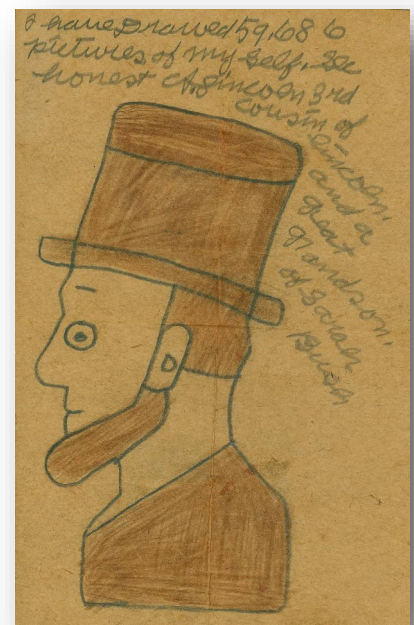 I have Drawed 59,686
pictures of my self. See
honest A. Lincoln 3rd
cousin of
Lincoln,
and a
great
grandson,
of Sarah
Bush